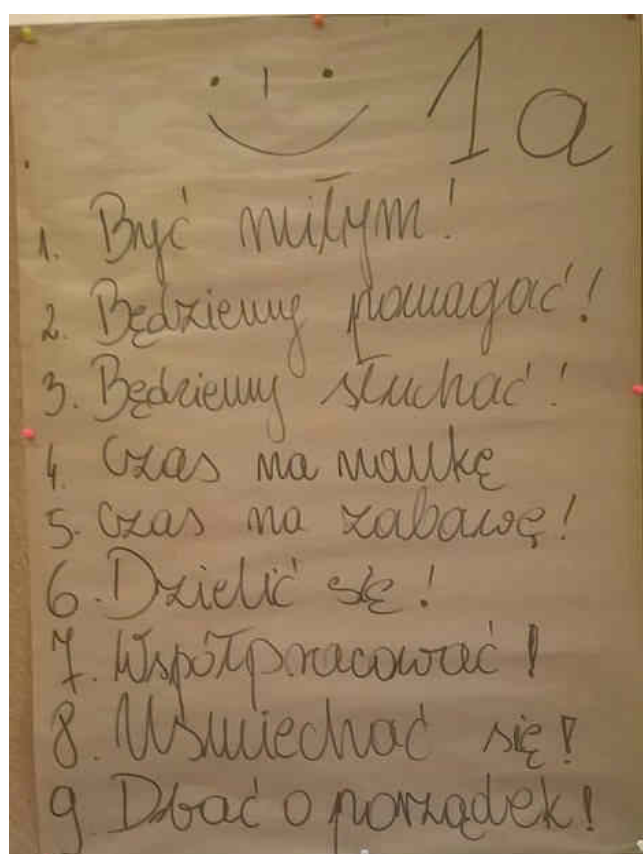 1a
1. Być miłym!
2. Będziemy pomagać!
3. Będziemy słuchać!
4. Czas na naukę
5. Czas na zabawę!
6. Dzielić się!
7. Współpracować!
8. Uśmiechać się!
9. Dbać o porządek!